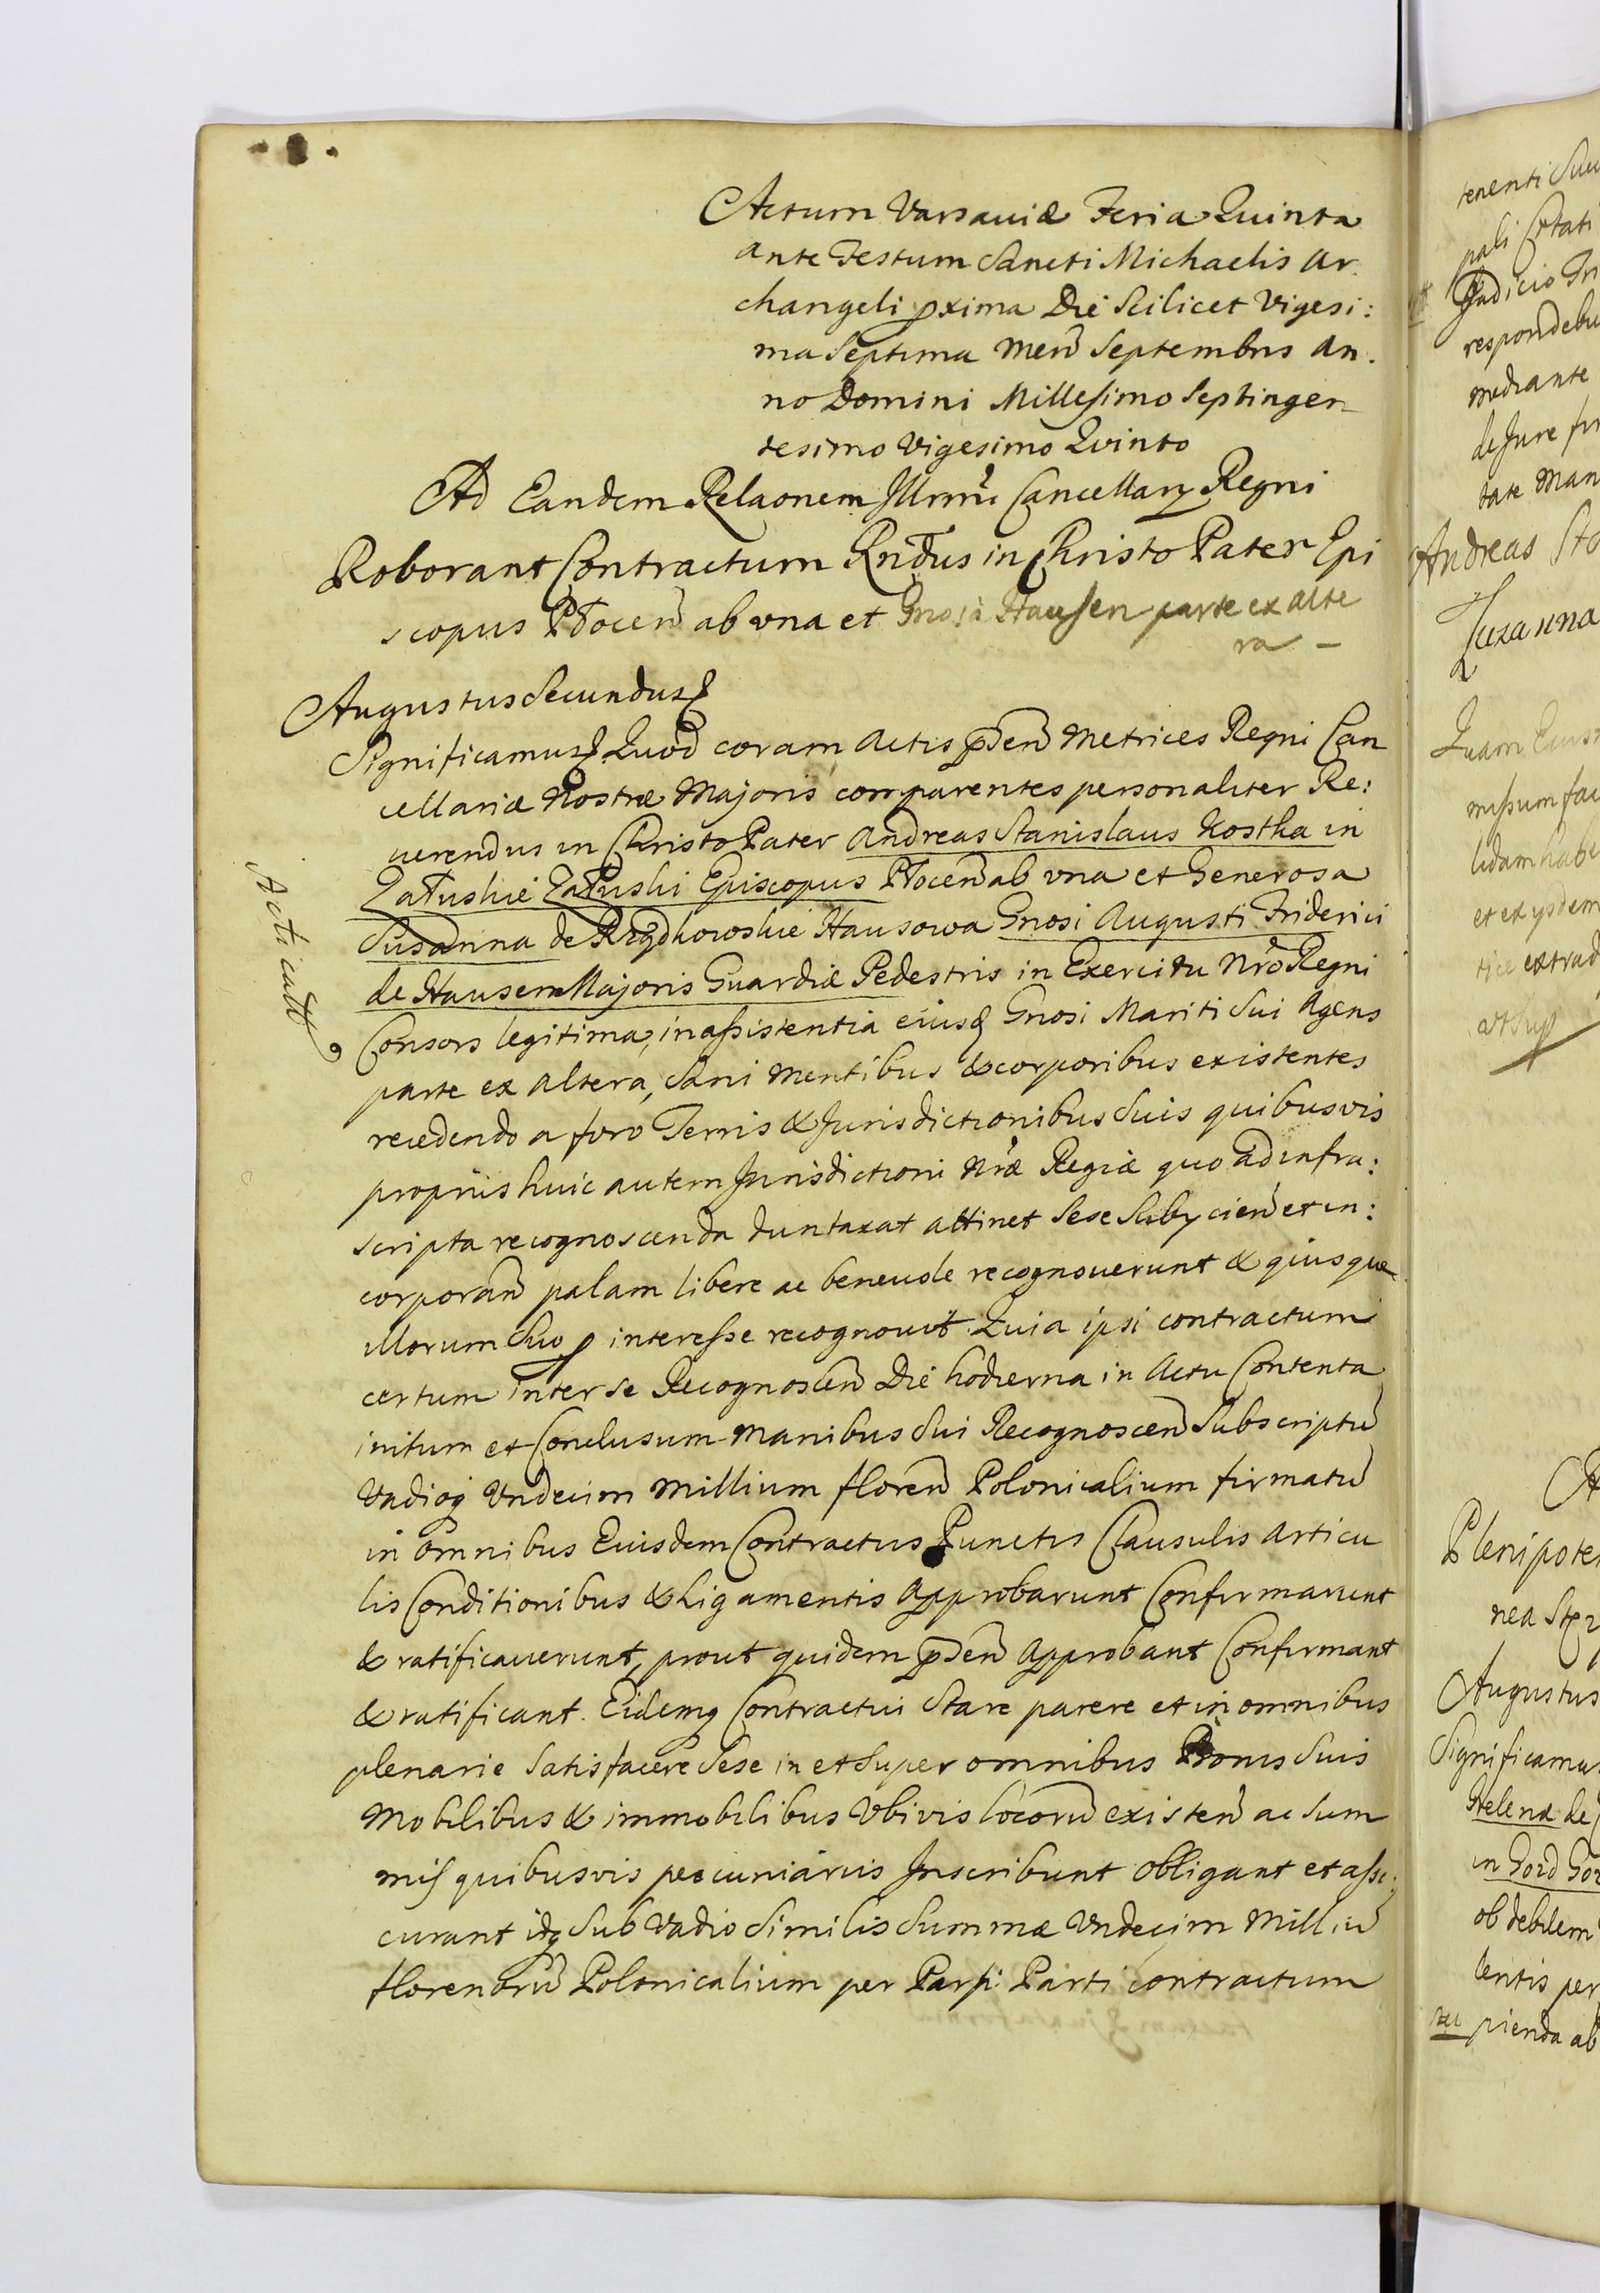 Actum Varsaviæ Feria Quinta
ante Festum Sancti Michaelis Ar
changeli pxima Die Scilicet Vigesi:
ma Septima Men̄ Septembris An:
no Domini Millesimo Septingen
tesimo Vigesimo Quinto
Ad Eandem Relaonem Illrmi Cancellarij Regni
Roborant Contractum Rndus in Christo Pater Epi
scopus Płocen̄ ab vna et Gnosa Hausen parte ex alte
ra –
Augustus Secundus
Significamus Quod coram Actis pñ̄ Metrices Regni Can
cellariæ Nostræ Majoris comparentes personaliter Re:
uerendus in Christo Pater Andreas Stanislaus Kostka in
Załuskie Załuski Episcopus Płocen̄ ab vna et Generosa
Susanna de Hausowa Gnosi Augusti Friderici
de Hausen Majoris Guardiæ Pedestris in Exercitu Nro Regni
Consors legitima, in assistentia eiusd Gnosi Mariti Sui Agens
parte ex altera, Sani mentibus & corporibus existentes
recedendo a foro Terris & Jurisdictionibus Suis quibusvis
proprijs huic autem Jurisdictioni Nræ Regiæ quo ad infra:
scripta recognoscenda duntaxat attinet Sese Subijcien̄ et in:
corporan̄ palam libere ac beneuole recognouerunt & quisque
illorum Suo p interesse recognouit. Quia ipsi contractum
certum inter se Recognoscen̄ Die hodierna in Actu Contenta
initum et Conclusum Manibus Sui Recognoscen̄ Subscriptū
Vadioq Vndecim Millium floren̄ Polonicalium firmatū
in omnibus Eiusdem Contractus Punctis Clausulis Articu
lis Conditionibus & Ligamentis Approbarunt Confirmarunt
& ratificauerunt, prout quidem Approbant Confirmant
& ratificant. Eidemq Contractui Stare parere et in omnibus
plenarie Satisfacere Sese in et Super omnibus Bonis Suis
Mobilibus & immobilibus Vbivis locorū existen̄ ac Sum
mis quibusvis pecuniarijs Inscribunt Obligant et asse:
curant idq Sub Vadio Similis Summæ Vndecim Milliū
florenorū Polonicalium per Parti contractum
Acticatt
tenenti Suu
pali Cotati
Judicio Tri
respondebu
mediante
de Jure
tate Man
Andreas Sto
Zuzanna
Quam Eius
missum fac
lidam habe
et ex ysdem
tice extrad
vt Sup
A
Plenipoten
nea
Augustus
Significamus
Helena de
in
ob debilem
lentis per
pienda ab